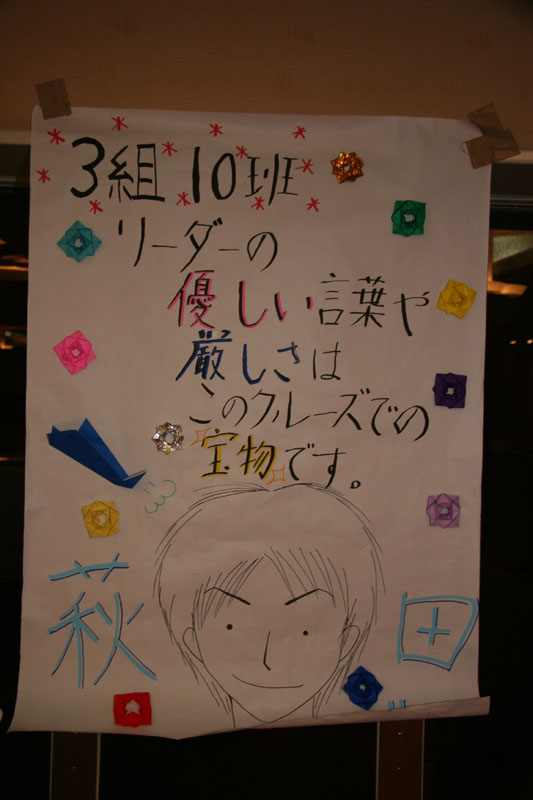 3組10班
リーダーの
優しい言葉や
厳しさは
このクルーズでの
宝物です。
萩田